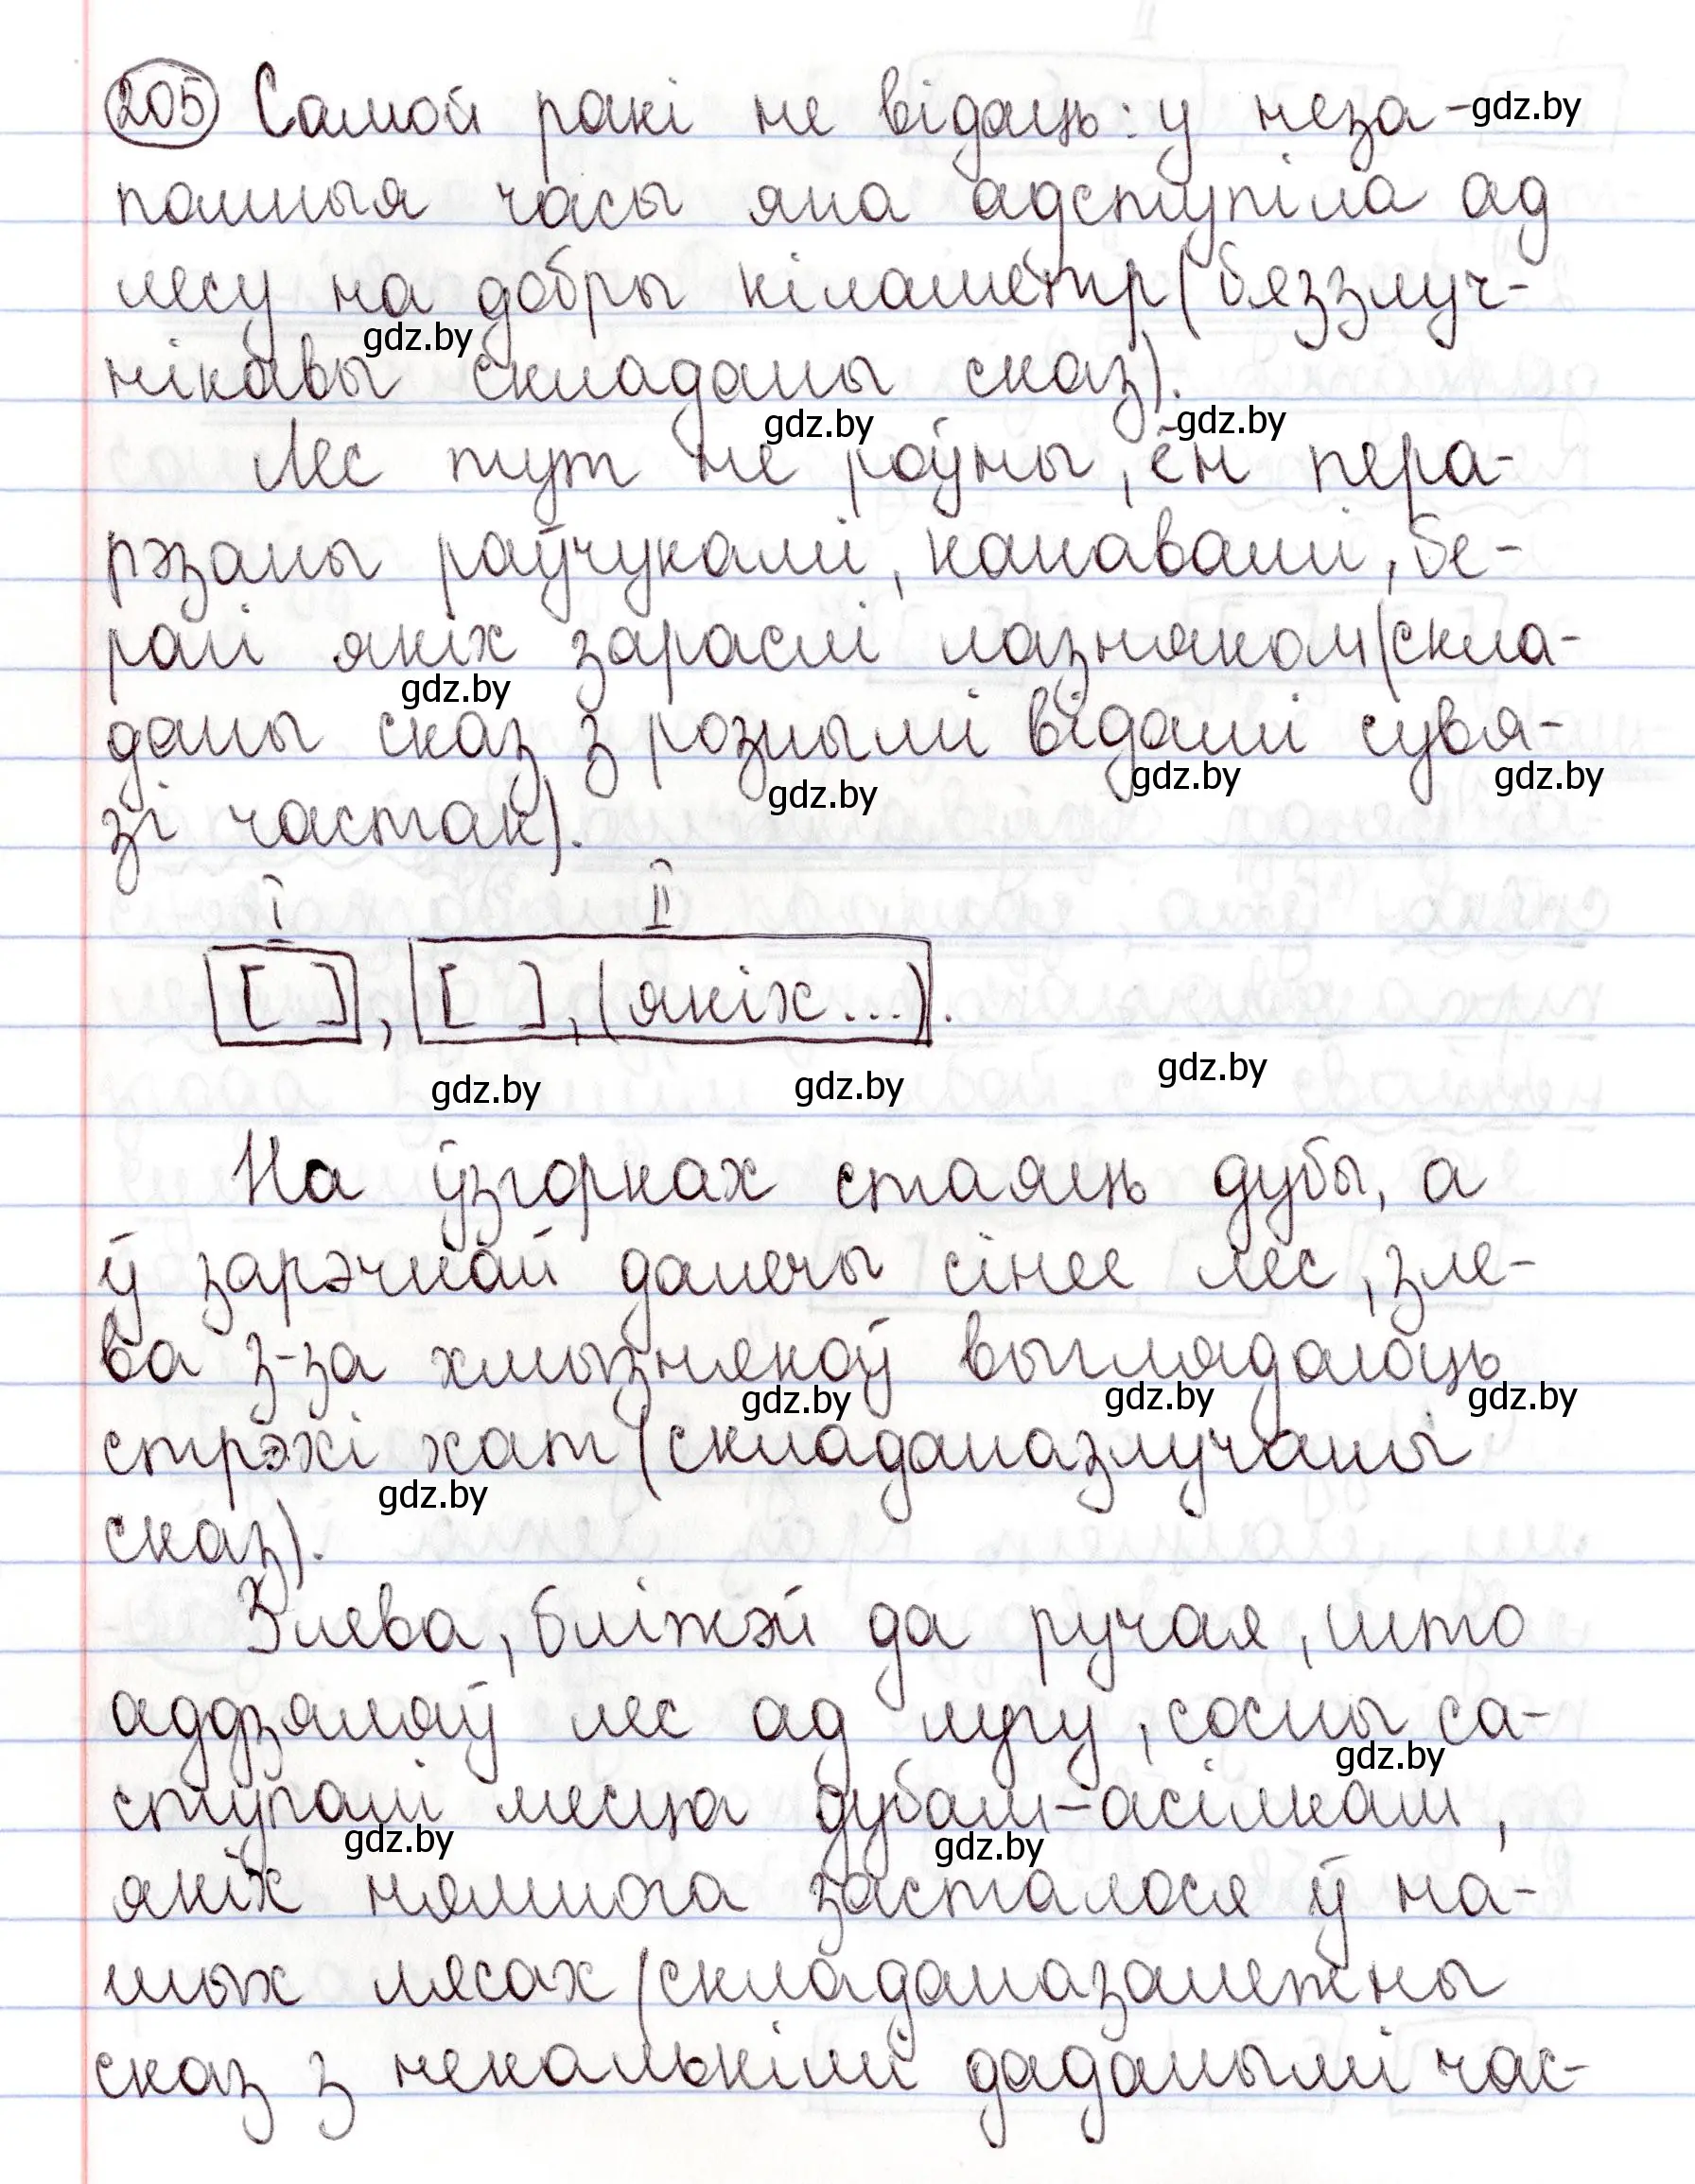 205 Самой ракі не відаць: у неза- gdz.by
памныя часы яна адступіла ад
лесу на добры кіламетр (бяззлуч-
gdz.by
нікавы складаны сказ).
gdz.by gdz.by
Лес тут не роўны, ён пера-
рэзаны раўчукамі, канавамі, бе-
рагі якіх зараслі лазняком (скла-
gdz.by
даны сказ з рознымі відамі сувя-
gdz.by gdz.by gdz.by
зі частак).
I II
[ ], [ ], (якіх...).
gdz.by gdz.by gdz.by
На ўзгорках стаяць дубы, а
ў зарэчнай далечы сінее лес, зле-
ва з-за хмызнякоў выглядалоць
gdz.by gdz.by gdz.by
стрэхі хат (складаназлучаны
gdz.by
сказ).
Злева, бліжэй да ручая, што
аддзяляў лес ад лугу, сосны са-
gdz.by
ступалі месца дубам-асілкам,
gdz.by gdz.by
якіх нямнога засталося ў на-
шых лясах (складаназалежны
сказ з некалькімі даданымі час-